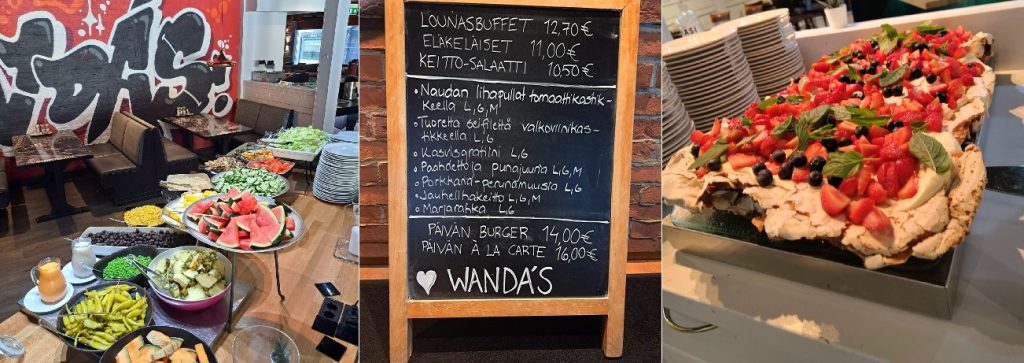 LOUNASBUFFET 12,70€
ELÄKELÄISET 11,00€
KEITTO-SALAATTI 10,50€
• Naudan lihapullat tomaattikastik-
keella L,G,M
• Tuoretta seifilettä valkoviinikas-
tikkeella L,G
• Kasvisgratiini L,G
• Paahdettuja punajuuria L,G,M
• Porkkana-perunamuusia L,G
• Jauhelihakeitto L,G,M
• Marjarahka L,G
PÄIVÄN BURGER 14,00€
PÄIVÄN À LA CARTE 16,00€
WANDA'S